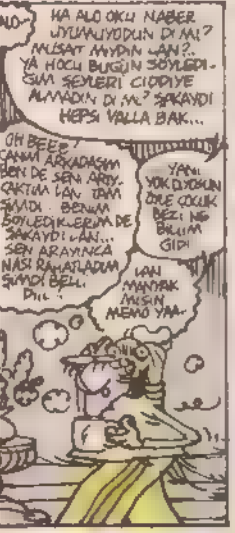 ALO-
HA ALO OKU NABER
UYUMUYODUN DI MI?
MÜSAIT MIYDIN LAN?..
YA HOCU BUGÜN SÖYLEDI-
ĞIM ŞEYLERI CIDDIYE
ALMADIN DI MI? ŞAKAYDI
HEPSI VALLA BAK...
OH BEEE!
CANIM ARKADAŞIM
BEN DE SENI ARIY-
CAKTIM LAN TAM
ŞIMDI. BENIM
SÖYLEDIKLERIM DE
ŞAKAYDI LAN...
SEN ARAYINCA
NASI RAHATLADIM
ŞIMDI
YANI
YOK DIYOSUN
ÖYLE ÇOCUK
BEZI NE
BILIIM
GIDI
LAN
MANYAK
MISIN
MEMO YAA..